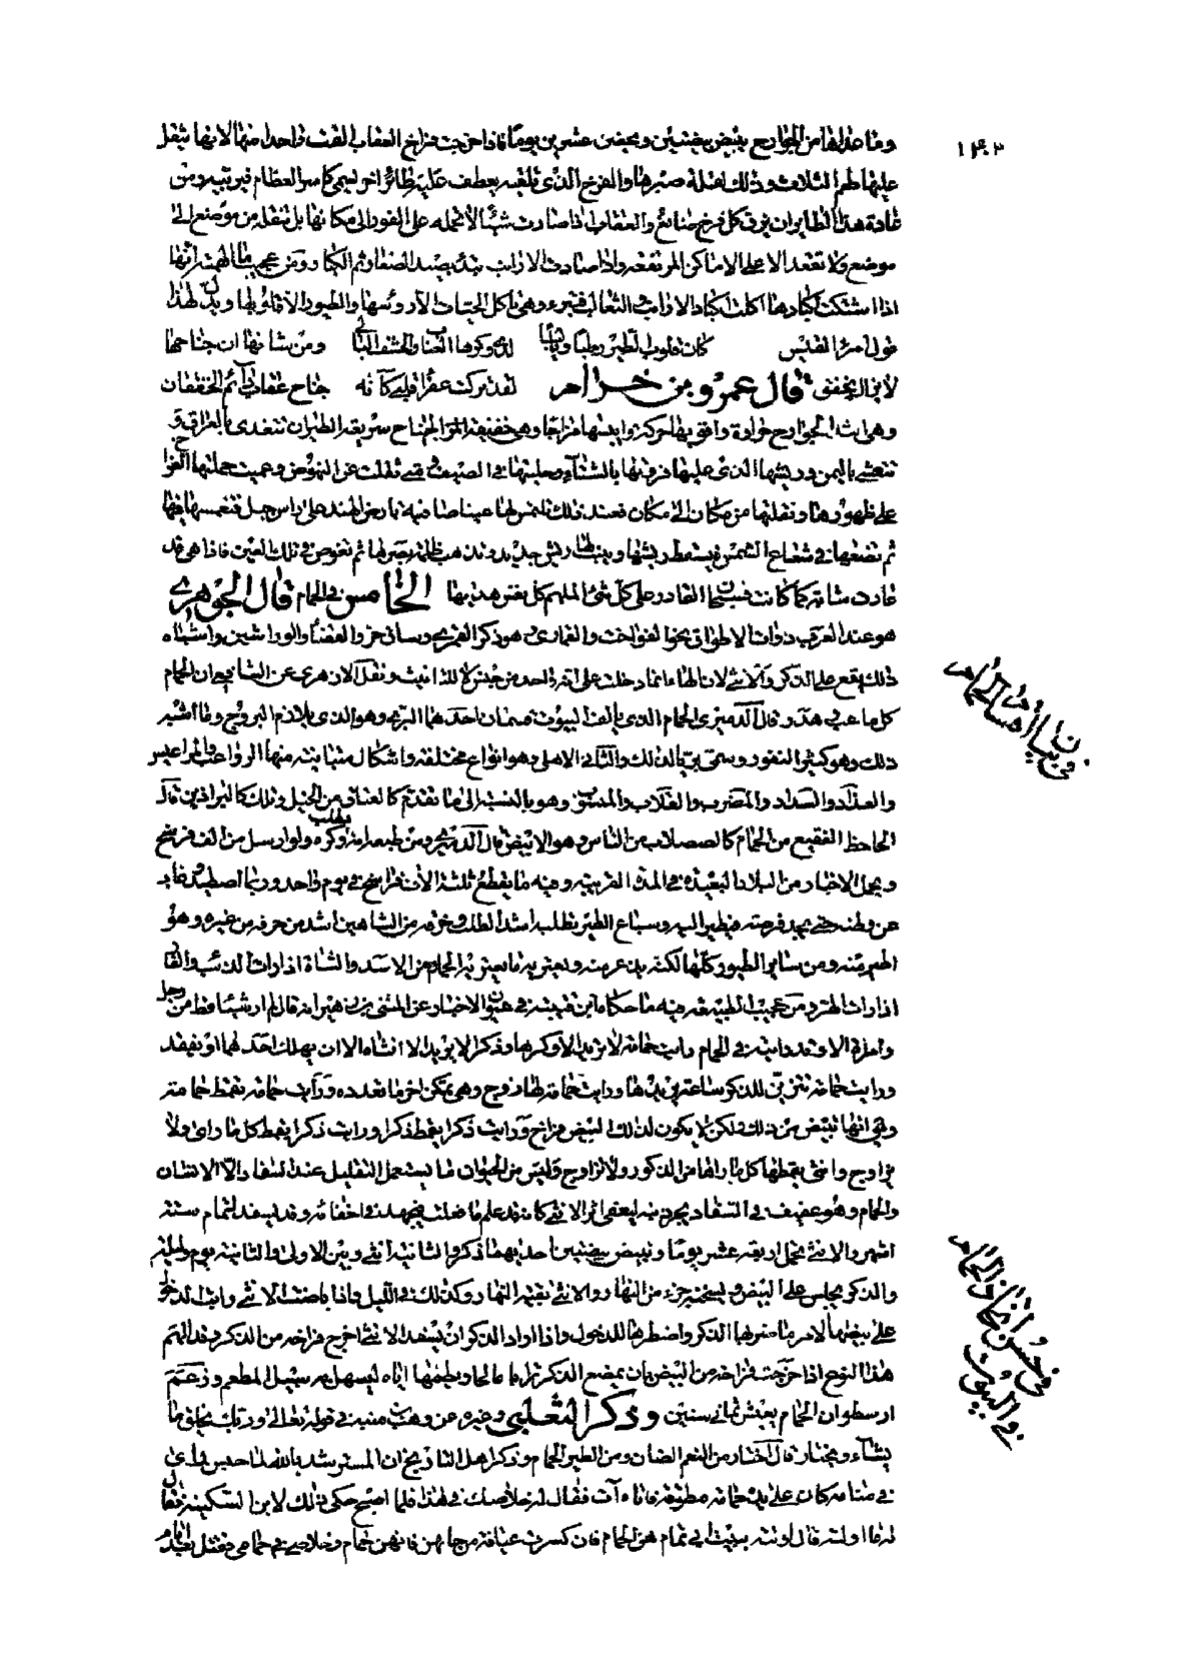 ١٤٠٣
وما عداها من الجوارح يبيض بيضتين ويحضن عشرين يوما فاذا خرجت فراخ العقاب القت واحدا منها لانها يثقل
عليها طعم الثلاث وذلك لقلة صبرها والفرخ الذى تلقيه يعطف عليه طائر اخر يسمى كاسر العظام فيربيه ومن
عادة هذا الطاير ان يزق كل فرخ ضائع والعقاب اذا صادت شيئا لا تحمله على الفور الى مكانها بل تنقله من موضع الى
موضع ولا تقعد الا على الاماكن المرتفعة واذا صادت الارانب تبدء بصيد الصغار ثم الكبار ومن عجيب ما الهمته انها
اذا اشتكت اكبادها اكلت اكباد الارانب والثعالب فتبرء وهى تاكل الحيات الا رؤسها والطيور الا قلوبها ويدل لهذا
قول امرء القيس كان قلوب الطير رطبا ويابسا لدى وكرها العناب والحشف البالى ومن شانها ان جناحها
لا يزال يخفق قال عمرو بن حزام لقد تركت عفراء قلبى كانه جناح عقاب دائم الخفقان
وهى اشد الجوارح حرارة واقويها حركة وايبسها مزاجا وهى خفيفة الجناح سريعة الطيران تتغدى بالعراق و
تتعشى باليمن وريشها الذى عليها فروتها بالشتاء وحليتها فى الصيف ومتى ثقلت عن النهوض وعميت حملتها الفراخ
على ظهورها ونقلتها من مكان الى مكان فعند ذلك تلتمس لها عينا صافية بارض الهند على راس جبل فتغمسها فيها
ثم تضعها فى شعاع الشمس فيسقط ريشها وينبت لها ريش جديد وتذهب ظلمة بصرها ثم تغوص فى تلك العين فاذا هى قد
عادت شابة كما كانت فسبحان القادر على كل شئ الملهم كل نفس هديها الخامس فى الحمام قال الجوهرى
هو عند العرب ذوات الاطواق نحو الفواخت والقمارى وهو ذكر القمرى وساق حر والقطا والوراشين واشباه
ذلك يقع على الذكر والانثى لان الهاء انما دخلت على انه واحد من جنس لا للتانيث ونقل الازهرى عن الشافعى ان الحمام
كل ما عب وهدر قال الدميرى الحمام الذى يالف البيوت قسمان احدهما البرى وهو الذى يلازم البروج وما اشبه
ذلك وهو كثير النفور وسمى بريا لذلك والثانى الاهلى وهو انواع مختلفة واشكال متباينة منها الرواعب والمراعيش
والعداد والسداد والمضرب والقلاب والمنسوب وهو بالنسبة الى ما تقدم كالعتاق من الخيل وتلك كالبراذين قال
الجاحظ الفقيع من الحمام كالصقلاب من الناس وهو الابيض قال الدميرى ومن طبعه انه يطلب وكره ولو ارسل من الف فرسخ
ويحمل الاخبار من البلاد البعيدة فى المدة القريبة وفيه ما يقطع ثلثة الاف فرسخ فى يوم واحد وربما اصطيد وغاب
عن وطنه حتى يجد فرصة فيطير اليه وسباع الطير تطلبه اشد الطلب وخوفه من الشاهين اشد من خوفه من غيره وهو
اطير منه ومن سائر الطيور كلها لكنه يذعر منه ويعتريه ما يعترى الحمار من الاسد والشاة اذا رات الذئب والفار
اذا رات الهر ومن عجيب الطبيعة فيه ما حكاه ابن قتيبة فى عيون الاخبار عن المثنى بن زهير انه قال لم ار شيئا قط من رجل
وامراة الا وقد رايته فى الحمام رايت حمامة لا تريد الا ذكرها وذكرا لا يريد الا انثاه الا ان يهلك احدهما او يفقد
ورايت حمامة تتزين للذكر ساعة يريدها ورايت حمامة لها زوج وهى تمكن اخر ما تعدوه ورايت حمامة تقمط حمامة
وهى انها تبيض من ذلك ولكن لا يكون لذلك البيض فراخ ورايت ذكرا يقمط ذكرا ورايت ذكرا يقمط كل ما راى ولا
يزاوج وانثى يقمطها كل ما راها من الذكور ولا تزاوج وليس من الحيوان ما يستعمل التقبيل عند السفاد الا الانسان
والحمام وهو عفيف فى السفاد يجر ذنبه ليعفى اثر الانثى كانه قد علم ما فعلت فيجهد فى اخفائه وقد يسفد لتمام ستة
اشهر والانثى تحمل اربعة عشر يوما وتبيض بيضتين احديهما ذكر والثانية انثى وبين الاولى والثانية يوم وليلة
والذكر يجلس على البيض ويسخنه جزء من النهار والانثى بقية النهار وكذلك فى الليل واذا باضت الانثى وابت الدخول
على بيضها لامر ما ضربها الذكر واضطرها للدخول واذا اراد الذكر ان يسفد الانثى اخرج فراخه من الذكر وقد الهم
هذا النوع اذا خرجت فراخه من البيض بان يمضغ الذكر ترابا مالحا ويطعمها اياه ليسهل به سبيل المطعم وزعم
ارسطو ان الحمام يعيش ثمانى سنين وذكر الثعلبى وغيره عن وهب بن منبه فى قوله تعالى وربك يخلق ما
يشاء ويختار قال اختار من النعم الضان ومن الطير الحمام وذكر اهل التاريخ ان المسترشد بالله لما حبس راى
فى منامه كان على يده حمامة مطوقة فاتاه آت فقال له خلاصك فى هذا فلما اصبح حكى ذلك لابن السكينة فقال
له ما اولته قال اولته ببيت ابى تمام هن الحمام فان كسرت عيافة من حائهن فانهن حمام وخلاصى فى حمامى فقتل بعد ايام
فى بيان اقسام الحمام
فى حسن اتخاذ الحمام
فى البيوت